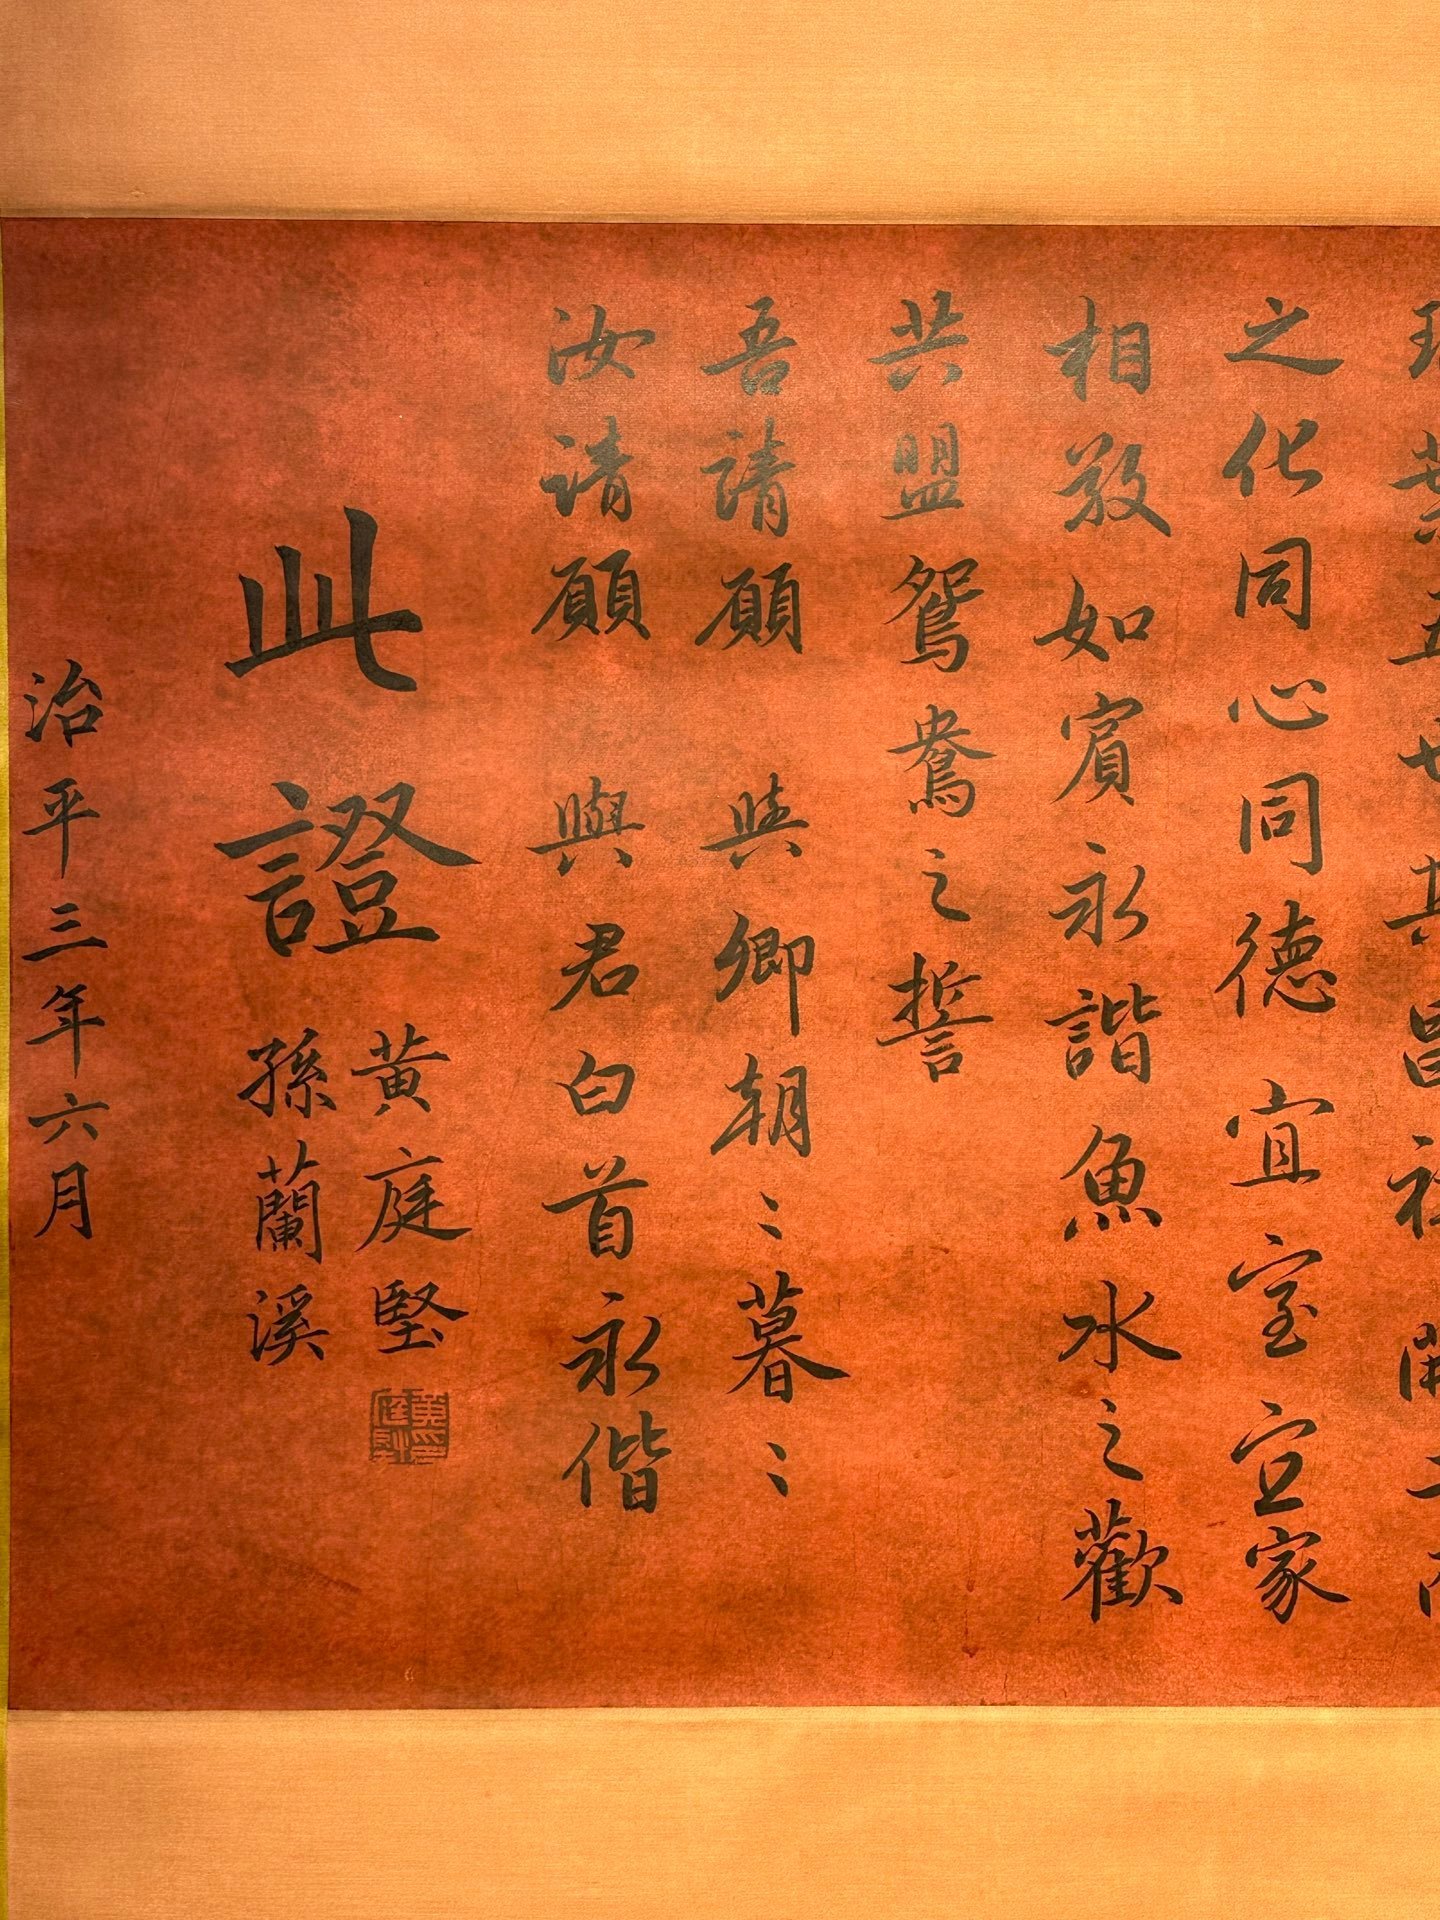 之化同心同德宜室宜家
相敬如賓永諧魚水之歡
共盟鴛鴦之誓
吾請願 與卿朝〻暮〻
汝請願 與君白首永偕
此證
黃庭堅
孫蘭溪
治平三年六月